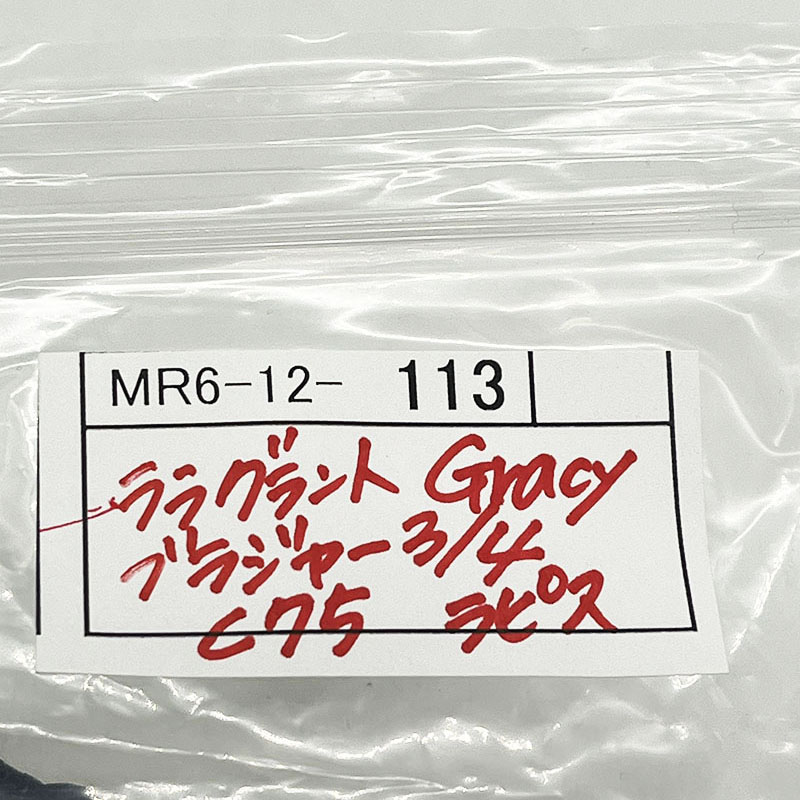 MR6-12- 113
ララグラント Gracy
ブラジャー3/4
C75 ラピス